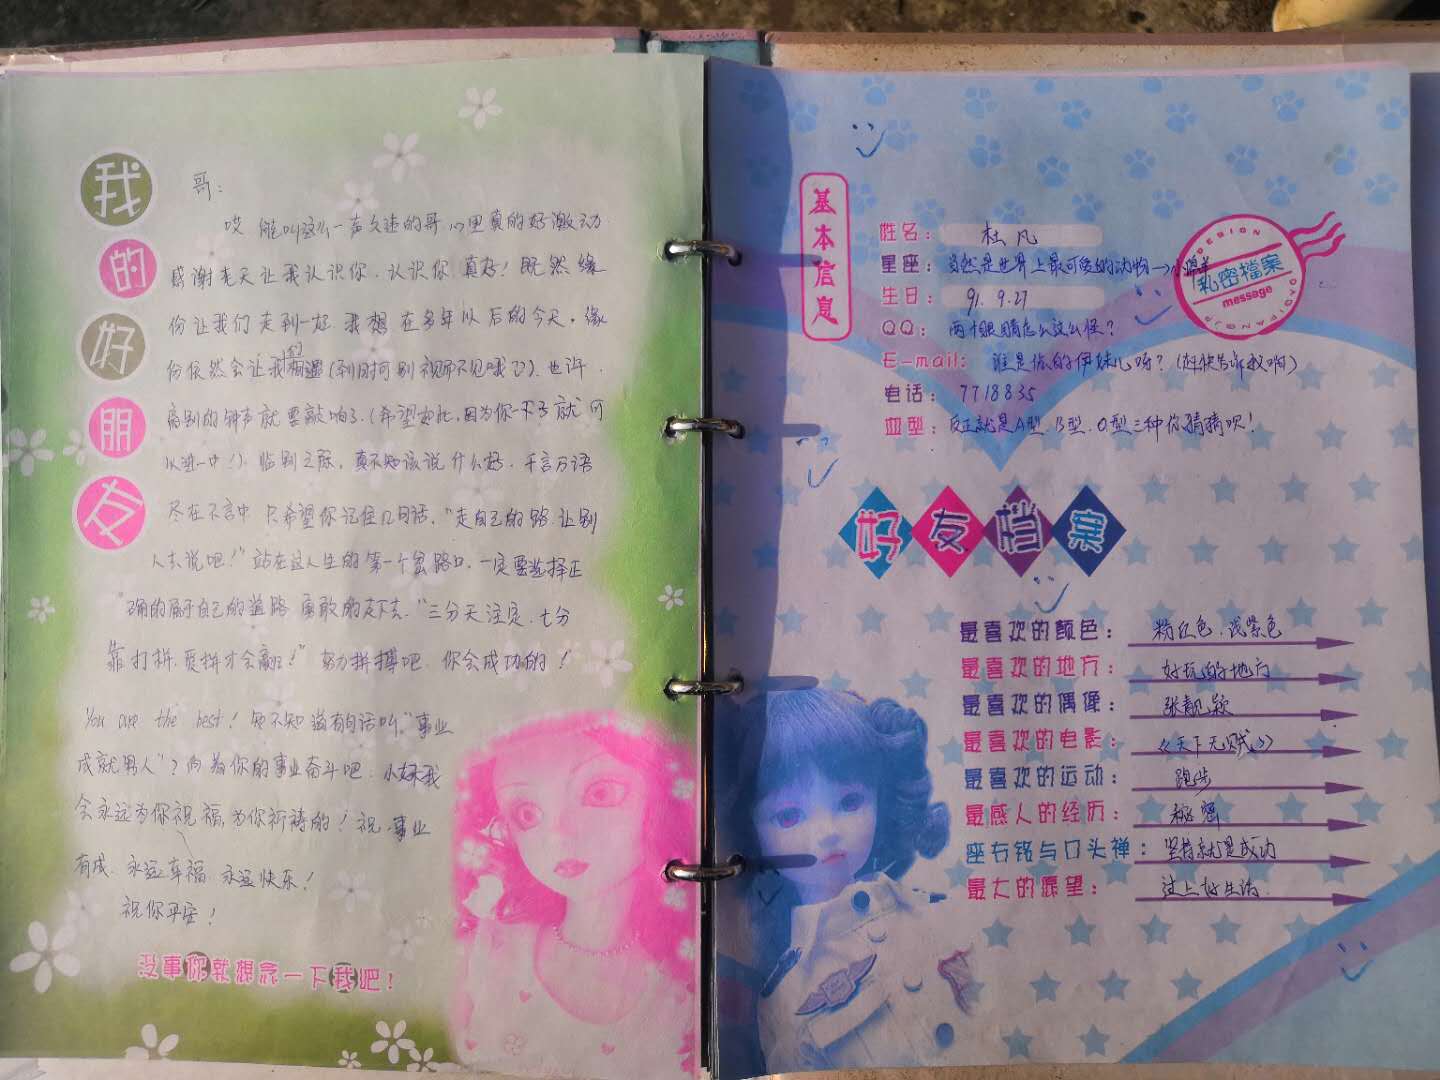 我的好朋友
哥:
哎 能叫这么一声久违的哥,心里真的好激动
感谢老天让我认识你,认识你真好!既然缘
份让我们走到一起 我想在多年以后的今天,缘
份依然会让我们相遇(到时可别视而不见哦).也许,
离别的钟声就要敲响了(希望如此,因为你一下子就可
以进一中!).临别之际,真不知该说什么好,千言万语
尽在不言中 只希望你记住几句话,“走自己的路,让别
人去说吧!”站在这人生的第一个岔路口,一定要选择正
确的属于自己的道路 勇敢的走下去,“三分天注定,七分
靠打拼,要拼才会赢!”努力拼搏吧,你会成功的!
You are the best! 知不知道有句话叫“事业
成就男人”?向为你的事业奋斗吧,小妹我
会永远为你祝福,为你祈祷的!祝:事业
有成,永远幸福,永远快乐!
祝你平安!
没事你就想念一下我吧!
基本信息
姓名: 杜凡
星座: 当然是世界上最可爱的动物→小绵羊
生日: 91.9.27
QQ: 两个眼睛怎么这么怪?
E-mail: 谁是你的伊妹儿呀?(赶快告诉我啊)
电话: 7718835
血型: 反正就是A型、B型、O型三种你猜猜呗!
DESIGN
私密档案
message
好友档案
最喜欢的颜色: 粉红色、浅紫色
最喜欢的地方: 好玩的地方
最喜欢的偶像: 张靓颖
最喜欢的电影: 《天下无贼》
最喜欢的运动: 跑步
最感人的经历: 秘密
座右铭与口头禅: 坚持就是成功
最大的愿望: 过上好生活